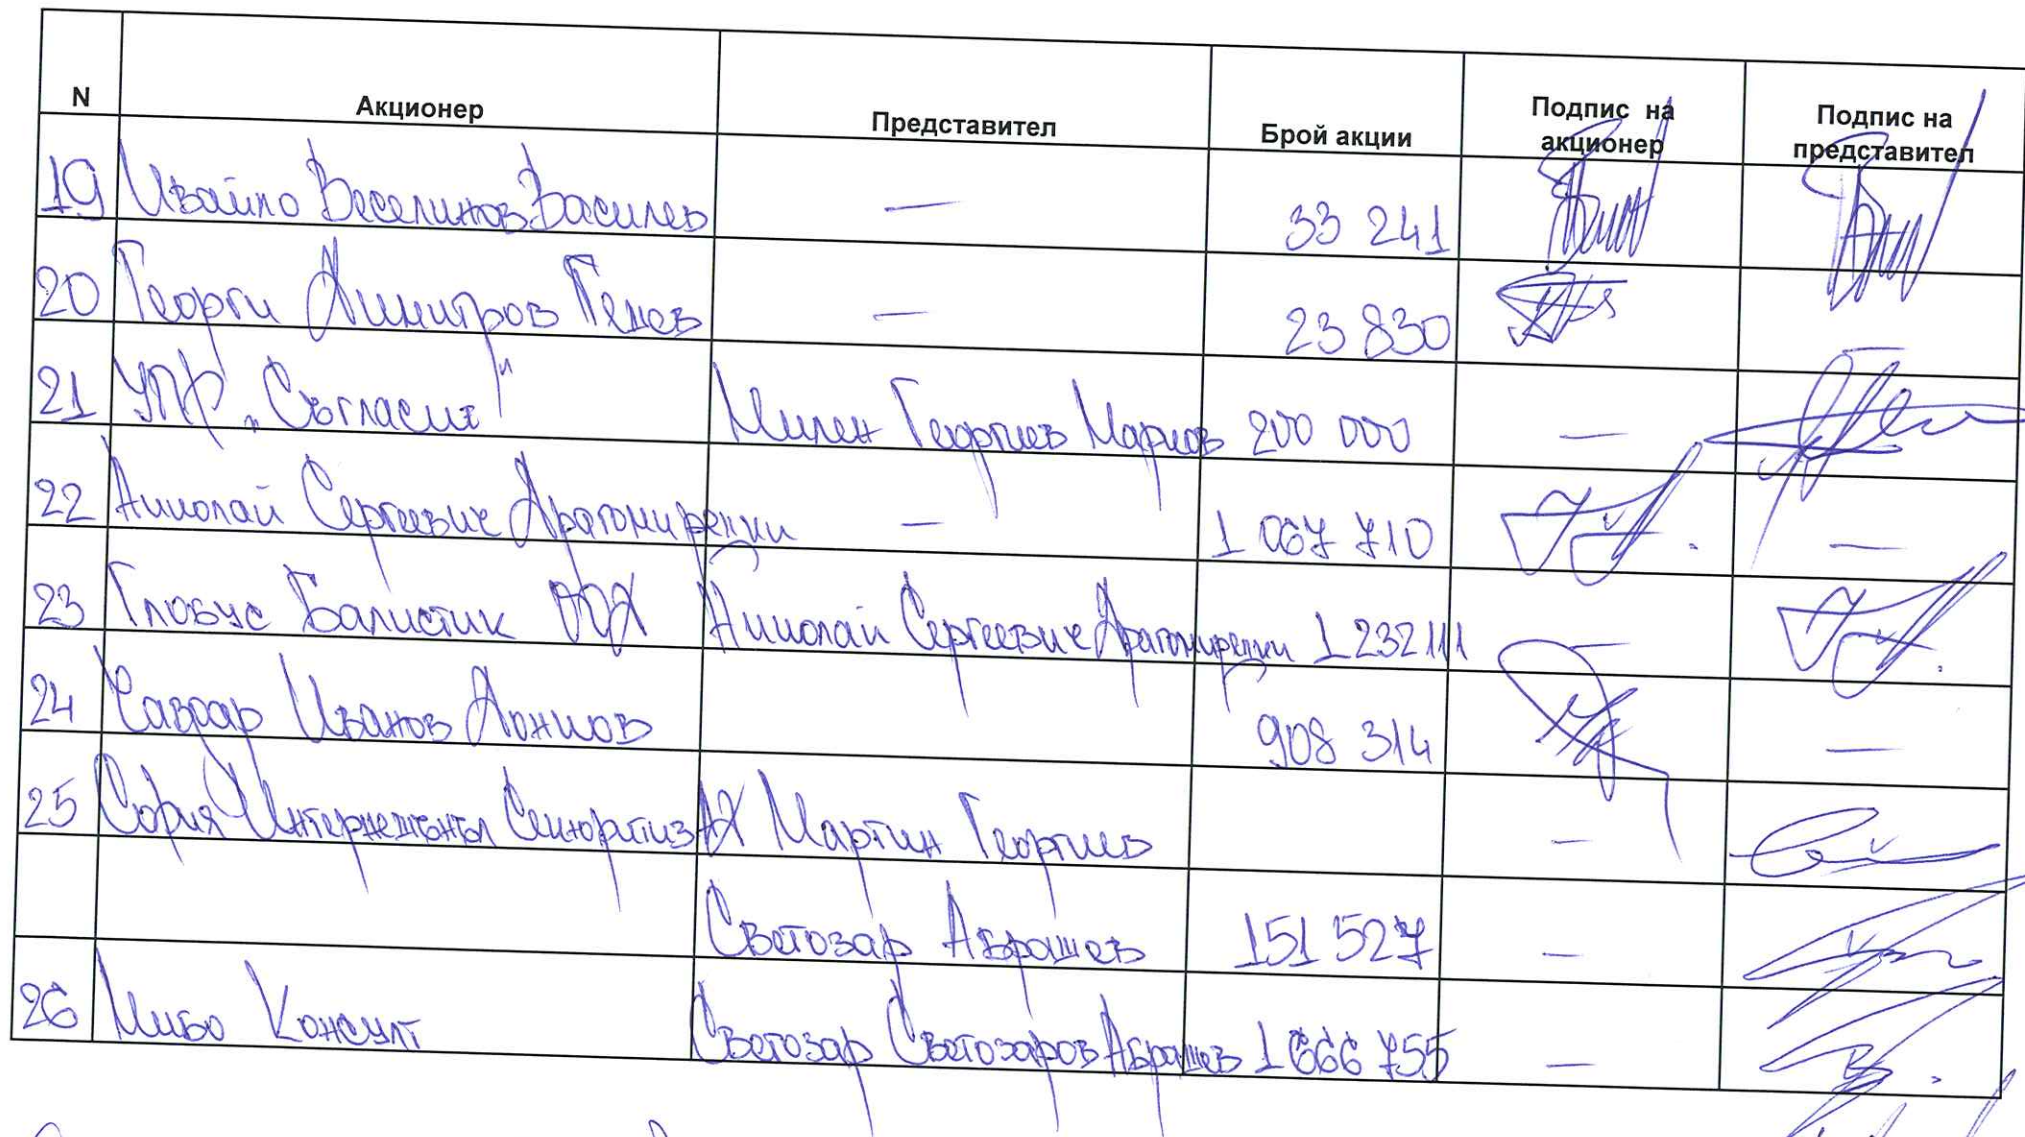 N Акционер Представител Брой акции Подпис на акционер Подпис на представител
19 Ивайло Веселинов Василев — 33 241
20 Георги Димитров Генев — 23 830
21 УПФ „Съгласие" Милен Георгиев Марков 200 000 —
22 Николай Сергеевич Драгомирецки — 1 067 710 —
23 Глобус Балистик ООД Николай Сергеевич Драгомирецки 1 232 111 —
24 Иванов Дончов 908 314 —
25 София Интернешънъл Секюритиз АД Мартин Георгиев —
Светозар Абрашев 151 527 —
26 Мибо Консулт Светозар Светозаров Абрашев 1 666 755 —